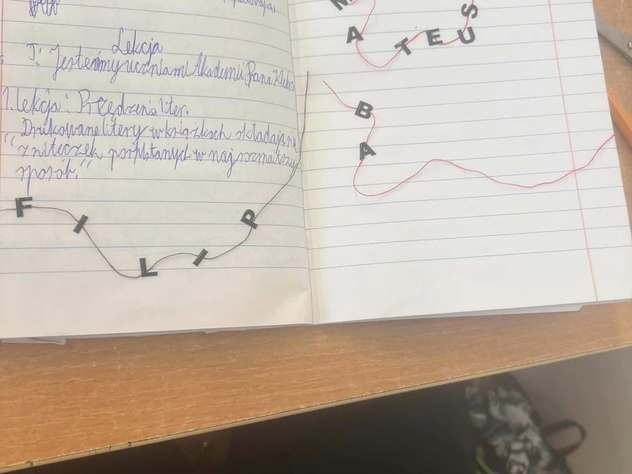 Lekcja
T: Jesteśmy uczniami Akademii Pana Kleksa
1. lekcja: Przędzenie liter.
"Drukowane litery w książkach składają się
z niteczek poplątanych w najrozmaitszy
sposób."
F I L I P
M A T E U S
B A